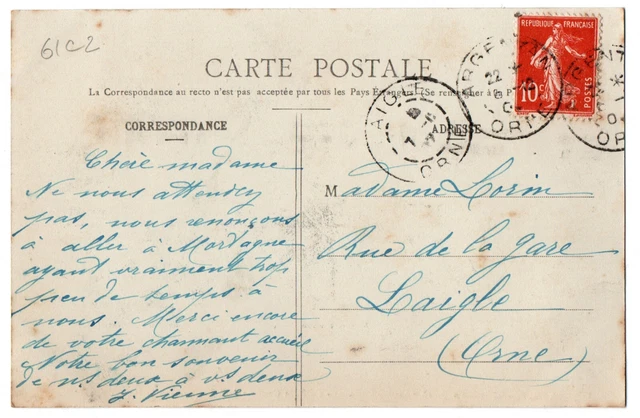 61C2
CARTE POSTALE
La Correspondance au recto n'est pas acceptée par tous les Pays Étrangers (Se renseigner à la
CORRESPONDANCE
ADRESSE
RÉPUBLIQUE FRANÇAISE
10c
POSTES
ARGENTAN
22
ORNE
AIGLE
ORNE
ORNE
Chère madame
Ne nous attendez
pas, nous renonçons
à aller à Mortagne
ayant vraiment trop
peu de temps à
nous. Merci encore
de votre charmant accueil
Notre bon souvenir
de ns deux à vs deux
J. Vienne
Madame Lorin
Rue de la gare
Laigle
(Orne)